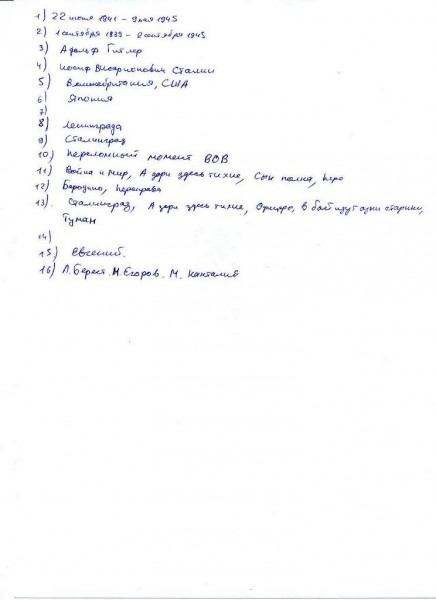 1) 22 июня 1941 – 9 мая 1945
2) 1 сентября 1939 – 2 сентября 1945
3) Адольф Гитлер
4) Иосиф Виссарионович Сталин
5) Великобритания, США
6) Япония
7)
8) Ленинграда
9) Сталинград
10) Переломный момент ВОВ
11) Война и мир, А зори здесь тихие, Сын полка,
12) Бородино, Переправа
13). Сталинград, А зори здесь тихие, Офицеры, В бой идут одни старики,
Туман
14)
15) Евгений.
16) Л. Берест. М. Егоров. М. Кантария